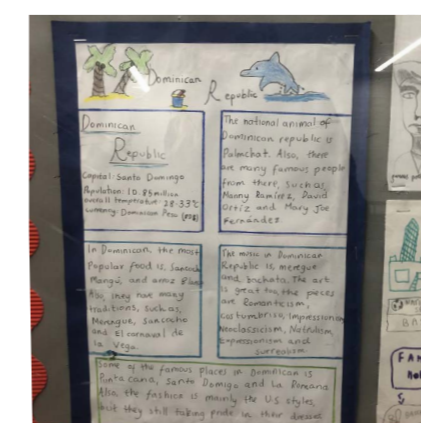 Dominican
Republic
Dominican
Republic
Capital: Santo Domingo
Population: 10.85 million
overall temperatur: 28-33°C
currency: Dominican Peso
The national animal of
Dominican republic is
Palmchat. Also, there
are many famous people
from there, such as
Manny Ramirez, David
Ortiz and Mary Joe
Fernandez
In Dominican, the most
Popular food is, Sancocho
Mangú, and arroz Blanco
Also, they hav many
traditions, such as,
Merengue, Sancocho
and El carnaval de
la Vega.
The music in Dominican
Republic is, meregue
and, bachata. The art
is great too, the pieces
are Romanticism,
Costumbrism, Impressionism
Neoclassicism,
Expressionism and
surrealism
Some of the famous places in Dominican is
Punta cana, Santo Domigo and La Romana
Also, the fashion is mainly the U.S styles,
but they still taking pride in their